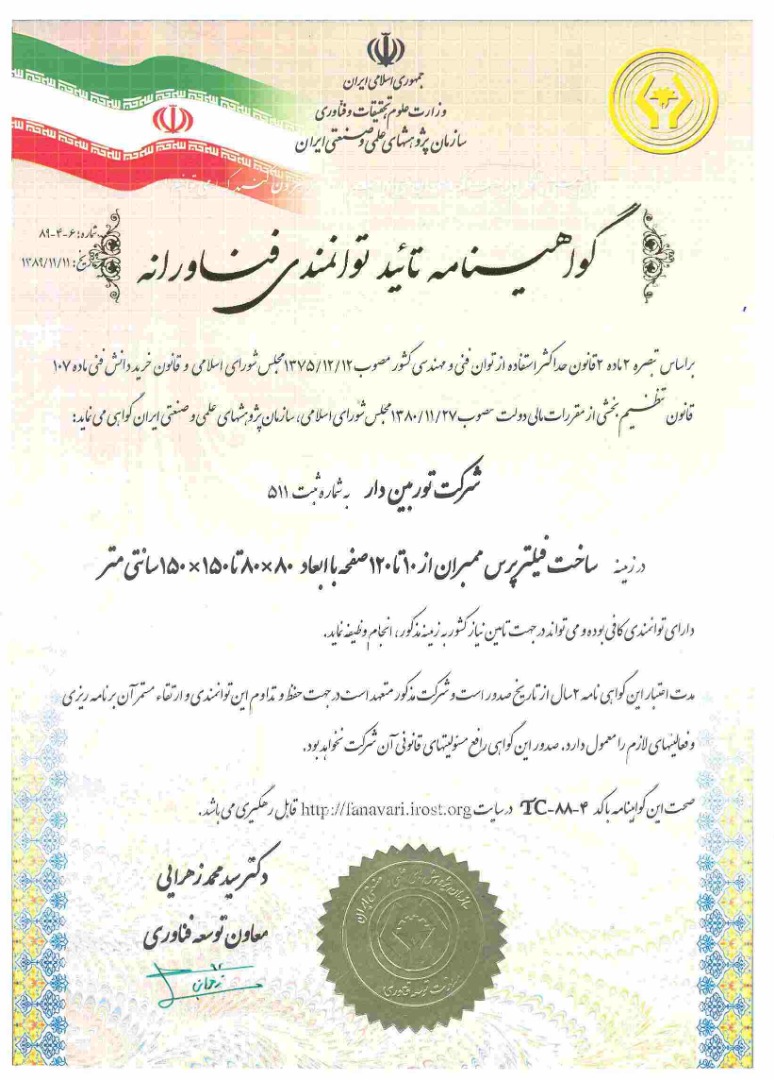 جمهوری اسلامی ایران
وزارت علوم تحقیقات و فناوری
سازمان پژوهشهای علمی و صنعتی ایران
شماره: ۸۹-۴-۶
تاریخ: ۱۳۸۹/۱۱/۱۱
گواهینامه تائید توانمندی فناورانه
براساس تبصره ۲ ماده ۲ قانون حداکثر استفاده از توان فنی و مهندسی کشور مصوب ۱۳۷۵/۱۲/۱۲ مجلس شورای اسلامی و قانون خرید دانش فنی ماده ۱۰۷
قانون تنظیم بخشی از مقررات مالی دولت مصوب ۱۳۸۰/۱۱/۲۷ مجلس شورای اسلامی، سازمان پژوهشهای علمی و صنعتی ایران گواهی می نماید:
شرکت توربین دار به شماره ثبت ۵۱۱
در زمینه ساخت فیلتر پرس ممبران از ۱۰ تا ۱۲۰ صفحه با ابعاد ۸۰×۸۰ تا ۱۵۰×۱۵۰ سانتی متر
دارای توانمندی کافی بوده و می تواند در جهت تامین نیاز کشور به زمینه مذکور، انجام وظیفه نماید.
مدت اعتبار این گواهی نامه ۲ سال از تاریخ صدور است و شرکت مذکور متعهد است در جهت حفظ و تداوم این توانمندی و ارتقاء مستمر آن برنامه ریزی
و فعالیتهای لازم را معمول دارد. صدور این گواهی رافع مسئولیتهای قانونی آن شرکت نخواهد بود.
صحت این گواهینامه با کد TC-۸۸-۴ در سایت http://fanavari.irost.org قابل رهگیری می باشد.
دکتر سید محمد زهرایی
معاون توسعه فناوری